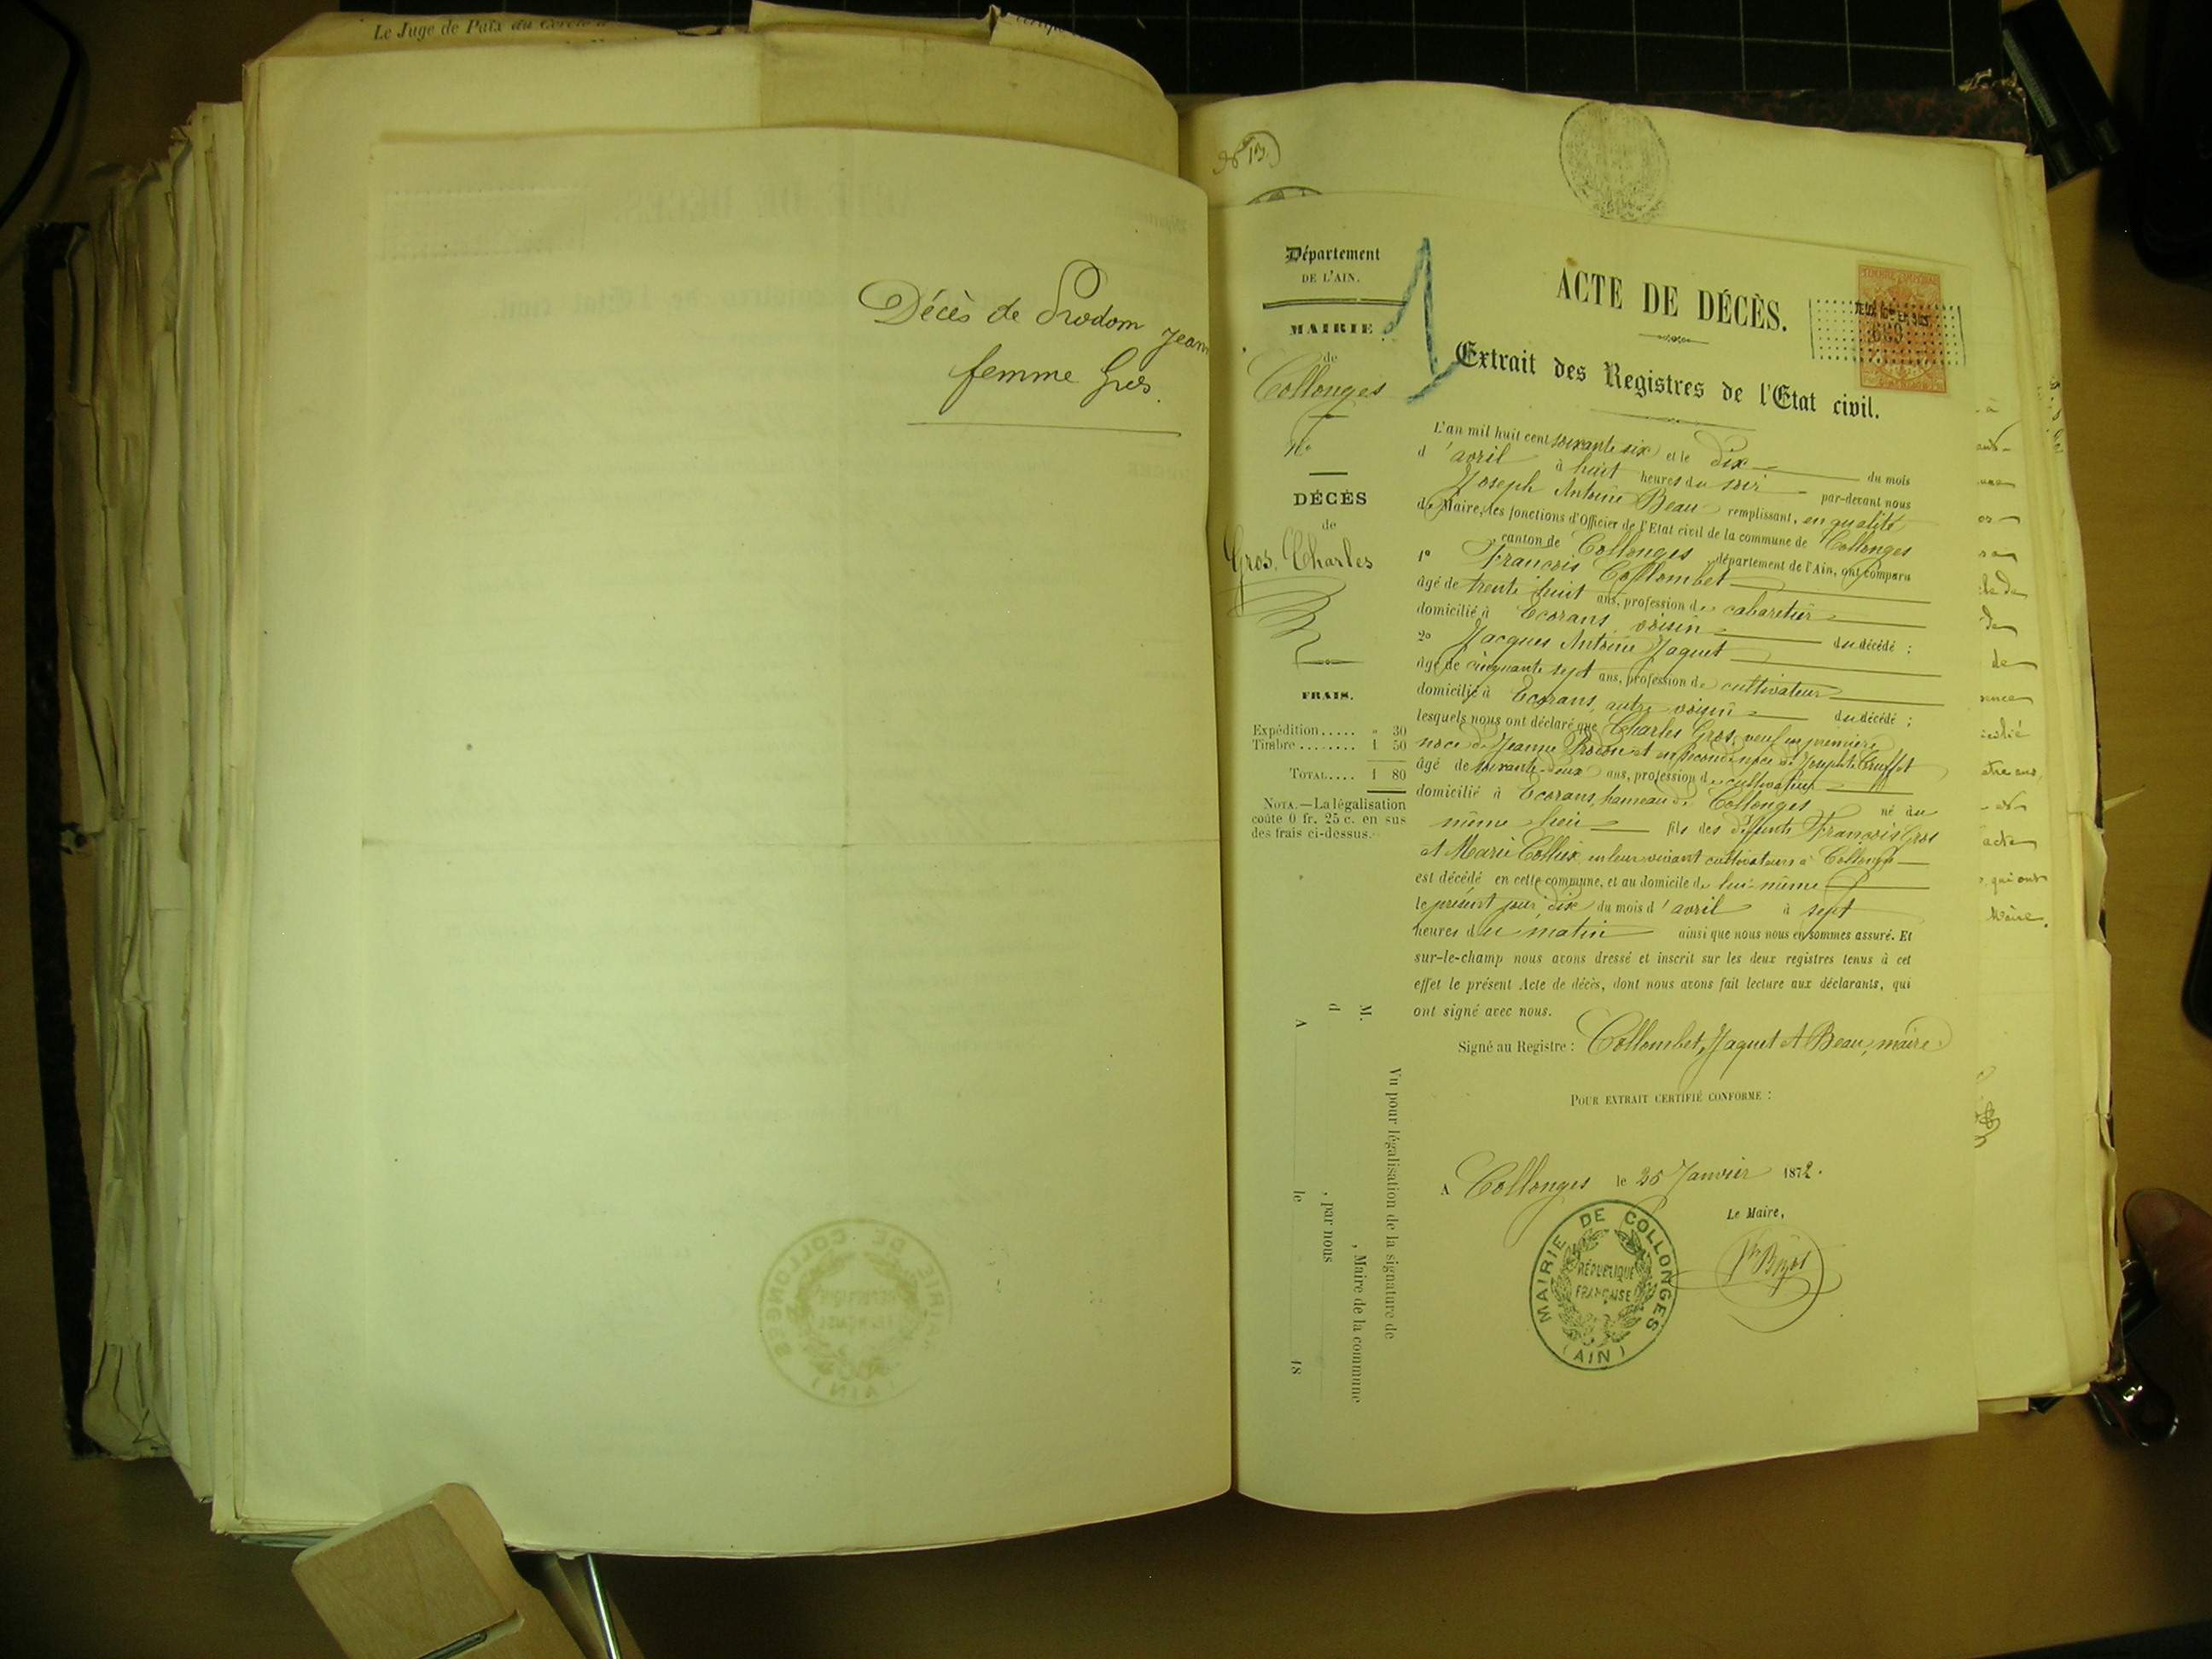 Le Juge de Paix du Cercle
Décès de Prodom Jeanne
femme Gros.
N° 13
Département
DE L'AIN.
MAIRIE
de
Collonges
N°
DÉCÈS
de
Gros, Charles
FRAIS.
Expédition..... » 30
Timbre........ 1 50
TOTAL.... 1 80
NOTA.—La légalisation
coûte 0 fr. 25 c. en sus
des frais ci-dessus.
Vu pour légalisation de la signature de
M. , Maire de la commune
d , par nous
A le 18
1
ACTE DE DÉCÈS.
TIMBRE IMPÉRIAL
689
Extrait des Registres de l'Etat civil.
L'an mil huit cent soixante six et le dix du mois
d'avril à huit heures du soir par-devant nous
Joseph Antoine Beau remplissant, en qualité
de Maire, les fonctions d'Officier de l'Etat civil de la commune de Collonges
canton de Collonges département de l'Ain, ont comparu
1° François Collombet
âgé de trente huit ans, profession de cabaretier
domicilié à Ecorans, voisin du décédé ;
2° Jacques Antoine Jaquet
âgé de cinquante sept ans, profession de cultivateur
domicilié à Ecorans, autre voisin du décédé ;
lesquels nous ont déclaré que Charles Gros, veuf en première
noce de Jeanne Prodom et en seconde noce de Josephte
âgé de soixante deux ans, profession de cultivateur
domicilié à Ecorans, hameau de Collonges né au
même lieu fils des défunts François Gros
et Marie Collix en leur vivant cultivateurs à Collonges
est décédé en cette commune, et au domicile de lui-même
le présent jour dix du mois d'avril à sept
heures du matin ainsi que nous nous en sommes assuré. Et
sur-le-champ nous avons dressé et inscrit sur les deux registres tenus à cet
effet le présent Acte de décès, dont nous avons fait lecture aux déclarants, qui
ont signé avec nous.
Signé au Registre : Collombet, Jaquet et Beau, maire
POUR EXTRAIT CERTIFIÉ CONFORME :
A Collonges le 25 Janvier 1872.
Le Maire,
MAIRIE DE COLLONGES
RÉPUBLIQUE
FRANÇAISE
(AIN)
de
acte
qui ont
Maire.